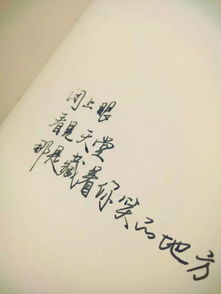 闭上眼
看见天堂
那是藏着你笑的地方